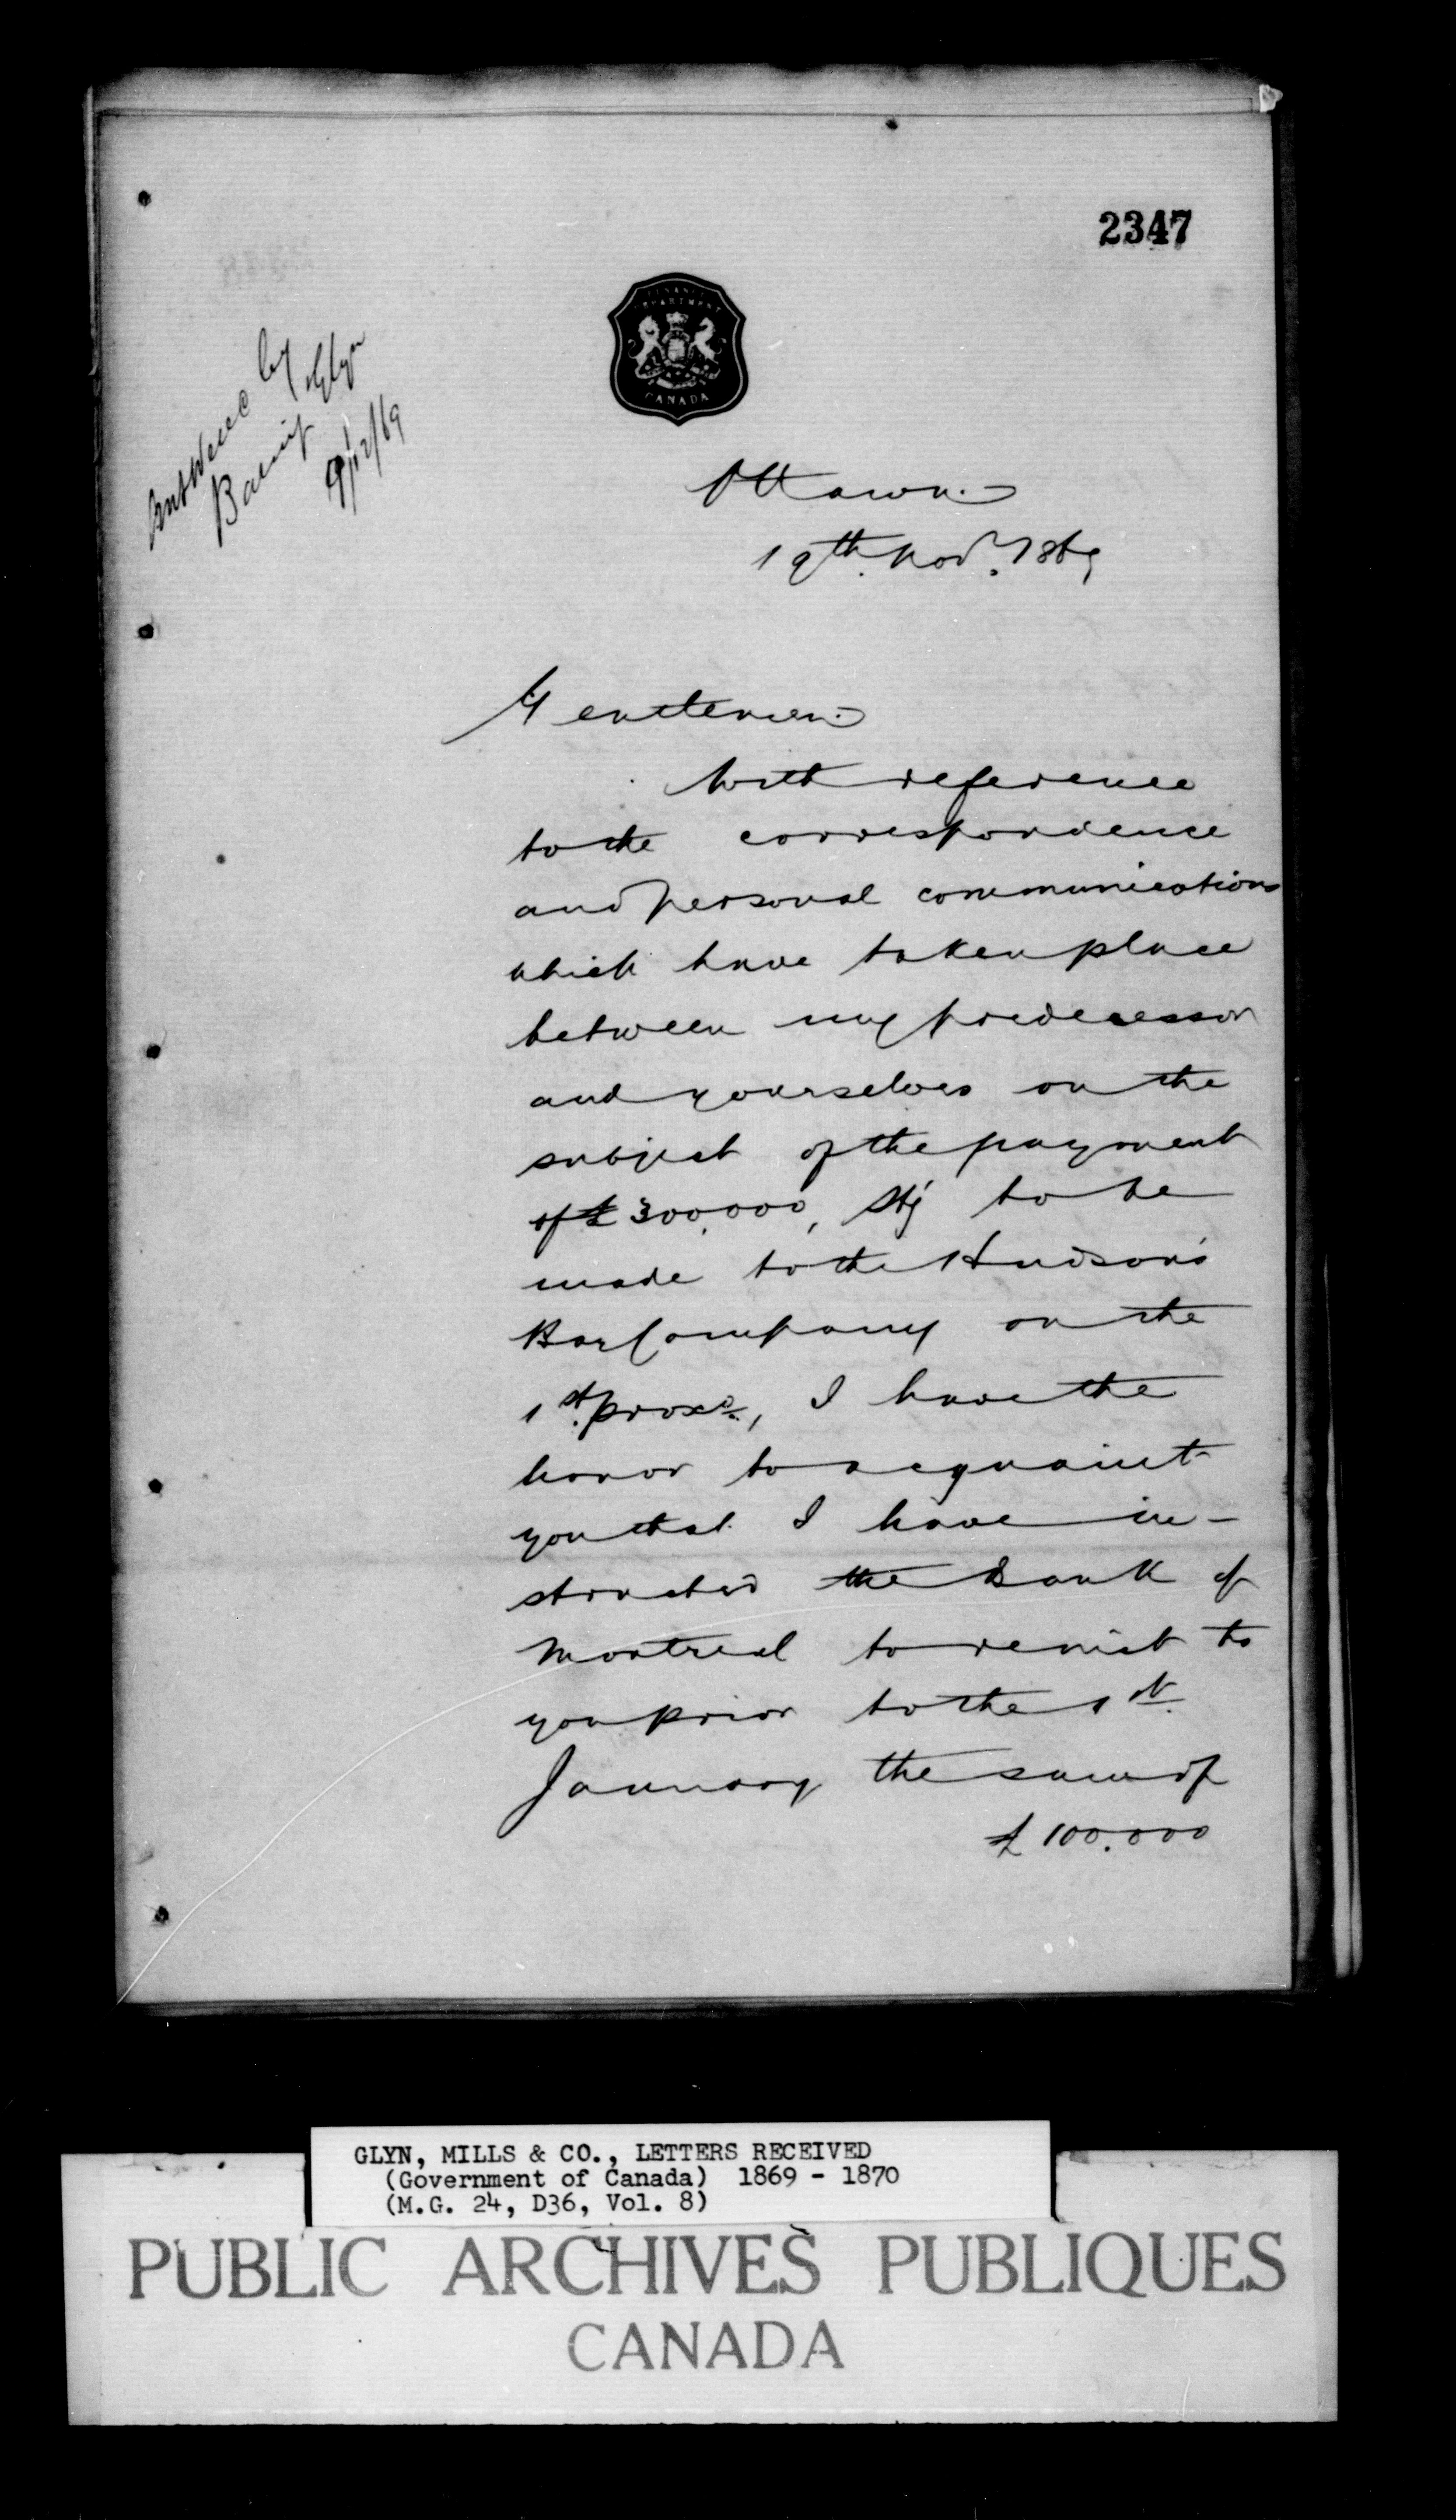 2347
Answered by
Baring & Glyn
9/12/69
FINANCE
DEPARTMENT
CANADA
Ottawa.
19th. Nov. 1869
Gentlemen.
With reference
to the correspondence
and personal communications
which have taken place
between my predecessor
and yourselves on the
subject of the payment
of £300,000, Stg to be
made to the Hudson's
Bay Company on the
1st. proxo., I have the
honor to acquaint
you that I have in-
structed the Bank of
Montreal to remit to
you prior to the 1st.
January the sum of
£100.000
GLYN, MILLS & CO., LETTERS RECEIVED
(Government of Canada) 1869 - 1870
(M.G. 24, D36, Vol. 8)
PUBLIC ARCHIVES PUBLIQUES
CANADA